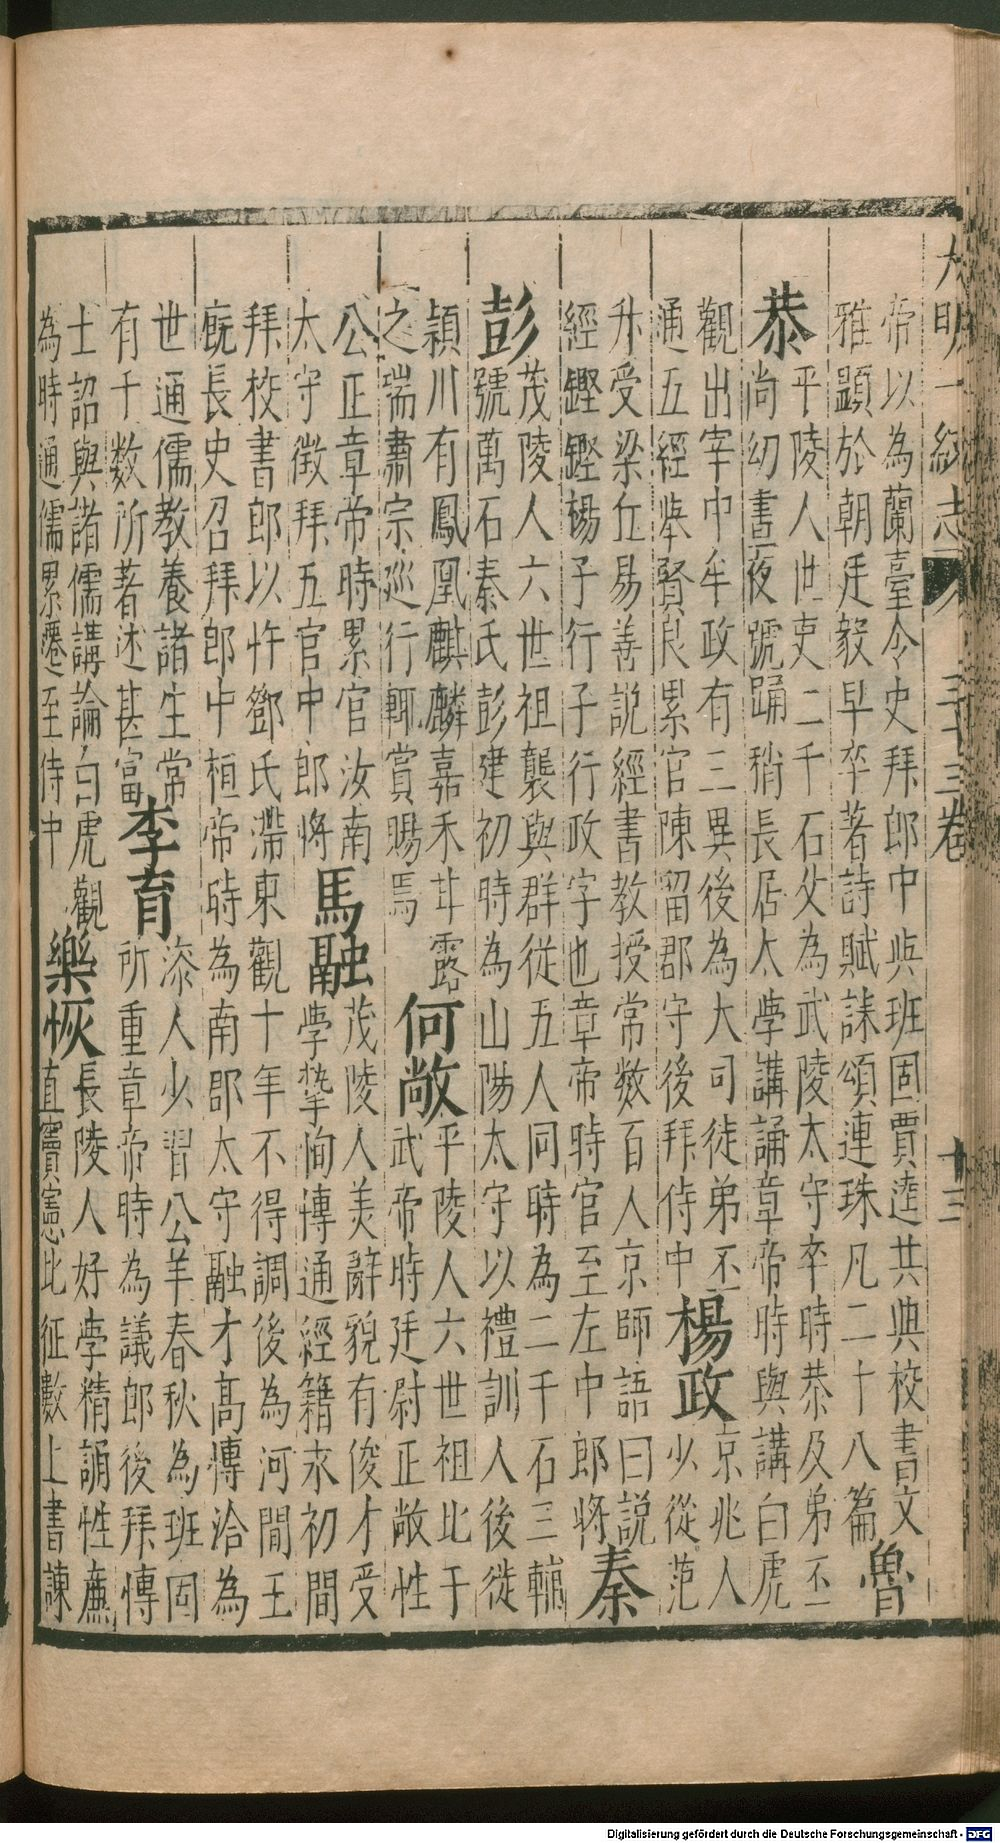 大明一統志 三十三卷 十三
帝以為蘭臺令史拜郎中與班固賈逵共典校書文
雅顯於朝廷毅早卒著詩賦誄頌連珠凡二十八篇
魯
恭
平陵人世吏二千石父為武陵太守卒時恭及弟丕
尚幼晝夜號踊稍長居太學講誦章帝時與講白虎
觀出宰中牟政有三異後為大司徒弟丕
通五經舉賢良累官陳留郡守後拜侍中
楊政
京兆人
少從范
升受梁丘易善說經書教授常數百人京師語曰説
經鏗鏗楊子行子行政字也章帝時官至左中郎將
秦
彭
茂陵人六世祖襲與群從五人同時為二千石三輔
號萬石秦氏彭建初時為山陽太守以禮訓人後徙
潁川有鳳凰麒麟嘉禾甘露
之瑞肅宗巡行輒賞賜焉
何敞
平陵人六世祖比干
武帝時廷尉正敞性
公正章帝時累官汝南
太守徵拜五官中郎將
馬融
茂陵人美辭貌有俊才受
學摯恂博通經籍永初間
拜校書郎以忤鄧氏滯東觀十年不得調後為河間王
廐長史召拜郎中桓帝時為南郡太守融才高博洽為
世通儒教養諸生常
有千數所著述甚富
李育
漆人少習公羊春秋為班固
所重章帝時為議郎後拜博
士詔與諸儒講論白虎觀
為時通儒累遷至侍中
樂恢
長陵人好學精誦性廉
直竇憲北征數上書諫
Digitalisierung gefördert durch die Deutsche Forschungsgemeinschaft - DFG